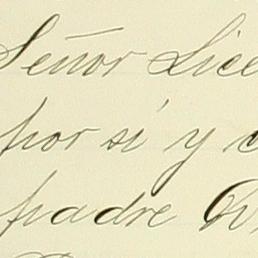 Señor Lice
por sí y
padre